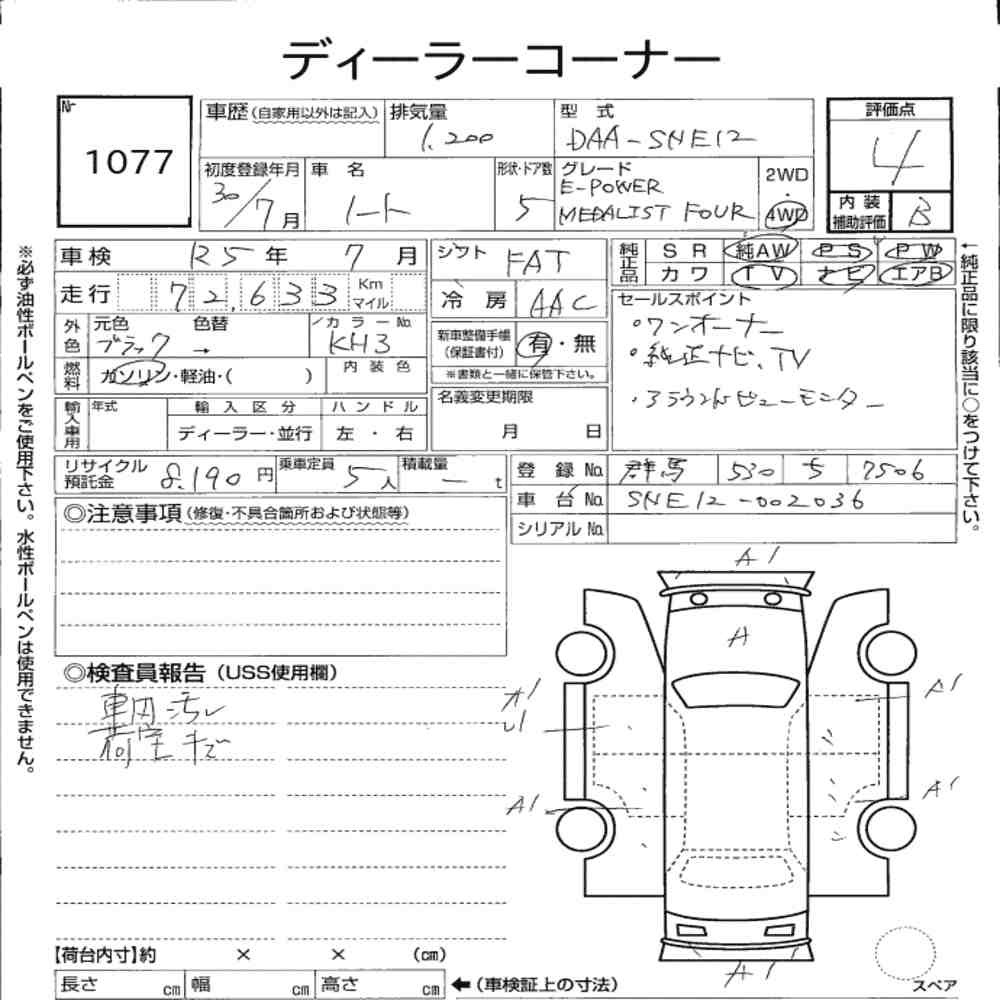 ディーラーコーナー
№
1077
車歴(自家用以外は記入)
排気量
1,200
型 式
DAA-SNE12
評価点
4
初度登録年月
30/7月
車 名
ノート
形状・ドア数
5
グレード
E-POWER
MEDALIST FOUR
2WD
・
4WD
内 装
補助評価
B
車検 R5年 7月
走行 72,633 Km
マイル
シフト FAT
冷 房 AAC
純正品
S R 純AW P S P W
カ ワ T V ナ ビ エアB
セールスポイント
・ワンオーナー
・純正ナビ、TV
・アラウンドビューモニター
外色
元色 色替
ブラック →
カラー№
KH3
新車整備手帳
(保証書付)
有・無
※書類と一緒に保管下さい。
燃料
ガソリン・軽油・( )
内 装 色
輸入車用
年式
輸 入 区 分
ディーラー・並行
ハ ン ド ル
左 ・ 右
名義変更期限
月 日
リサイクル
預託金
8,190円
乗車定員
5人
積載量
— t
登 録 № 群馬 530 ち 7506
車 台 № SNE12-002036
シリアル №
◎注意事項(修復・不具合箇所および状態等)
◎検査員報告(USS使用欄)
車内汚レ
荷室キズ
A1
A
A1
A1
A1
A1
【荷台内寸】約 × × (cm)
長さ cm 幅 cm 高さ cm ←(車検証上の寸法)
スペア
※必ず油性ボールペンをご使用下さい。水性ボールペンは使用できません。
←純正品に限り該当に○をつけて下さい。